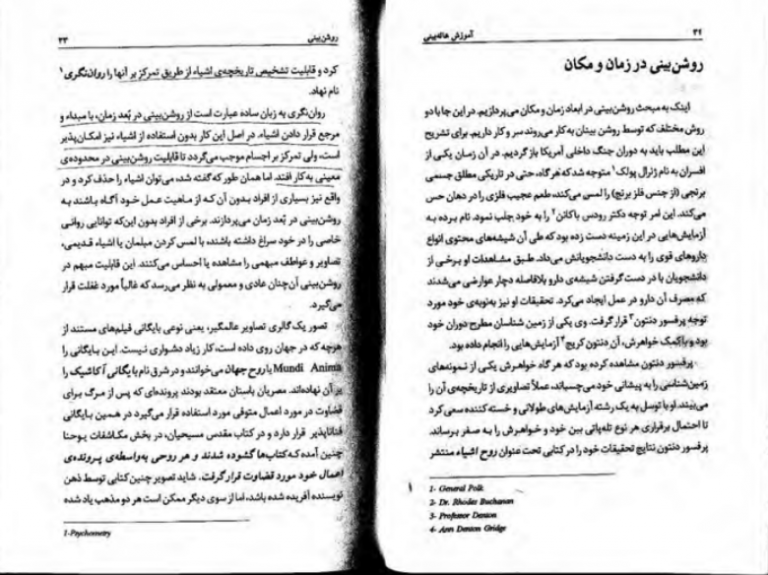 ۳۲
آموزش هاله‌بینی
روشن‌بینی در زمان و مکان
اینک به مبحث روشن‌بینی در ابعاد زمان و مکان می‌پردازیم. در این جا با دو
روش مختلف که توسط روشن بینان به کار می‌روند سر و کار داریم. برای تشریح
این مطلب باید به دوران جنگ داخلی آمریکا بازگردیم. در آن زمان یکی از
افسران به نام ژنرال پولک¹ متوجه شد که هر گاه، حتی در تاریکی مطلق جسمی
برنجی (از جنس فلز برنج) را لمس می‌کند، طعم عجیب فلزی را در دهان حس
می‌کند. این امر توجه دکتر رودس باکانن² را به خود جلب نمود. نام برده به
آزمایش‌هایی در این زمینه دست زده بود که طی آن شیشه‌های محتوی انواع
داروهای قوی را به دست دانشجویانش می‌داد. طبق مشاهدات او برخی از
دانشجویان با در دست گرفتن شیشه‌ی دارو بلافاصله دچار عوارضی می‌شدند
که مصرف آن دارو در عمل ایجاد می‌کرد. تحقیقات او نیز به‌نوبه‌ی خود مورد
توجه پرفسور دنتون³ قرار گرفت. وی یکی از زمین شناسان مطرح دوران خود
بود و با کمک خواهرش، آن دنتون کریج⁴ آزمایش‌هایی را انجام داده بود.
پرفسور دنتون مشاهده کرده بود که هر گاه خواهرش یکی از نمونه‌های
زمین‌شناسی را به پیشانی خود می‌چسباند، عملاً تصاویری از تاریخچه‌ی آن را
می‌بیند. او با توسل به یک رشته آزمایش‌های طولانی و خسته کننده سعی کرد
تا احتمال برقراری هر نوع تله‌پاتی بین خود و خواهرش را به صفر برساند.
پرفسور دنتون نتایج تحقیقات خود را در کتابی تحت عنوان روح اشیاء منتشر
1- General Polk
2- Dr. Rhodes Buchanan
3- Professor Denton
4- Ann Denton Gridge
روشن‌بینی
۳۳
کرد و قابلیت تشخیص تاریخچه‌ی اشیاء از طریق تمرکز بر آنها را روان‌نگری¹
نام نهاد.
روان‌نگری به زبان ساده عبارت است از روشن‌بینی در بُعد زمان، با مبداء و
مرجع قرار دادن اشیاء. در اصل این کار بدون استفاده از اشیاء نیز امکان‌پذیر
است، ولی تمرکز بر اجسام موجب می‌گردد تا قابلیت روشن‌بینی در محدوده‌ی
معینی به کار افتد. اما همان طور که گفته شد، می‌توان اشیاء را حذف کرد و در
واقع نیز بسیاری از افراد بدون آن که از ماهیت عمل خود آگاه باشند به
روشن‌بینی در بُعد زمان می‌پردازند. برخی از افراد بدون این‌که توانایی روانی
خاصی را در خود سراغ داشته باشند، با لمس کردن مبلمان یا اشیاء قدیمی،
تصاویر و عواطف مبهمی را مشاهده یا احساس می‌کنند. این قابلیت مبهم در
روشن‌بینی آن‌چنان عادی و معمولی به نظر می‌رسد که غالباً مورد غفلت قرار
می‌گیرد.
تصور یک گالری تصاویر عالمگیر، یعنی نوعی بایگانی فیلم‌های مستند از
هرچه که در جهان روی داده است، کار زیاد دشواری نیست. این بایگانی را
Mundi Anima یا روح جهان می‌خوانند و در شرق نام بایگانی آکاشیک را
بر آن نهاده‌اند. مصریان باستان معتقد بودند پرونده‌ای که پس از مرگ برای
قضاوت در مورد اعمال متوفی مورد استفاده قرار می‌گیرد در همین بایگانی
فناناپذیر قرار دارد و در کتاب مقدس مسیحیان، در بخش مکاشفات یوحنا
چنین آمده که کتاب‌ها گشوده شدند و هر روحی به‌واسطه‌ی پرونده‌ی
اعمال خود مورد قضاوت قرار گرفت. شاید تصویر چنین کتابی توسط ذهن
نویسنده آفریده شده باشد، اما از سوی دیگر ممکن است هر دو مذهب یاد شده
1-Psychometry